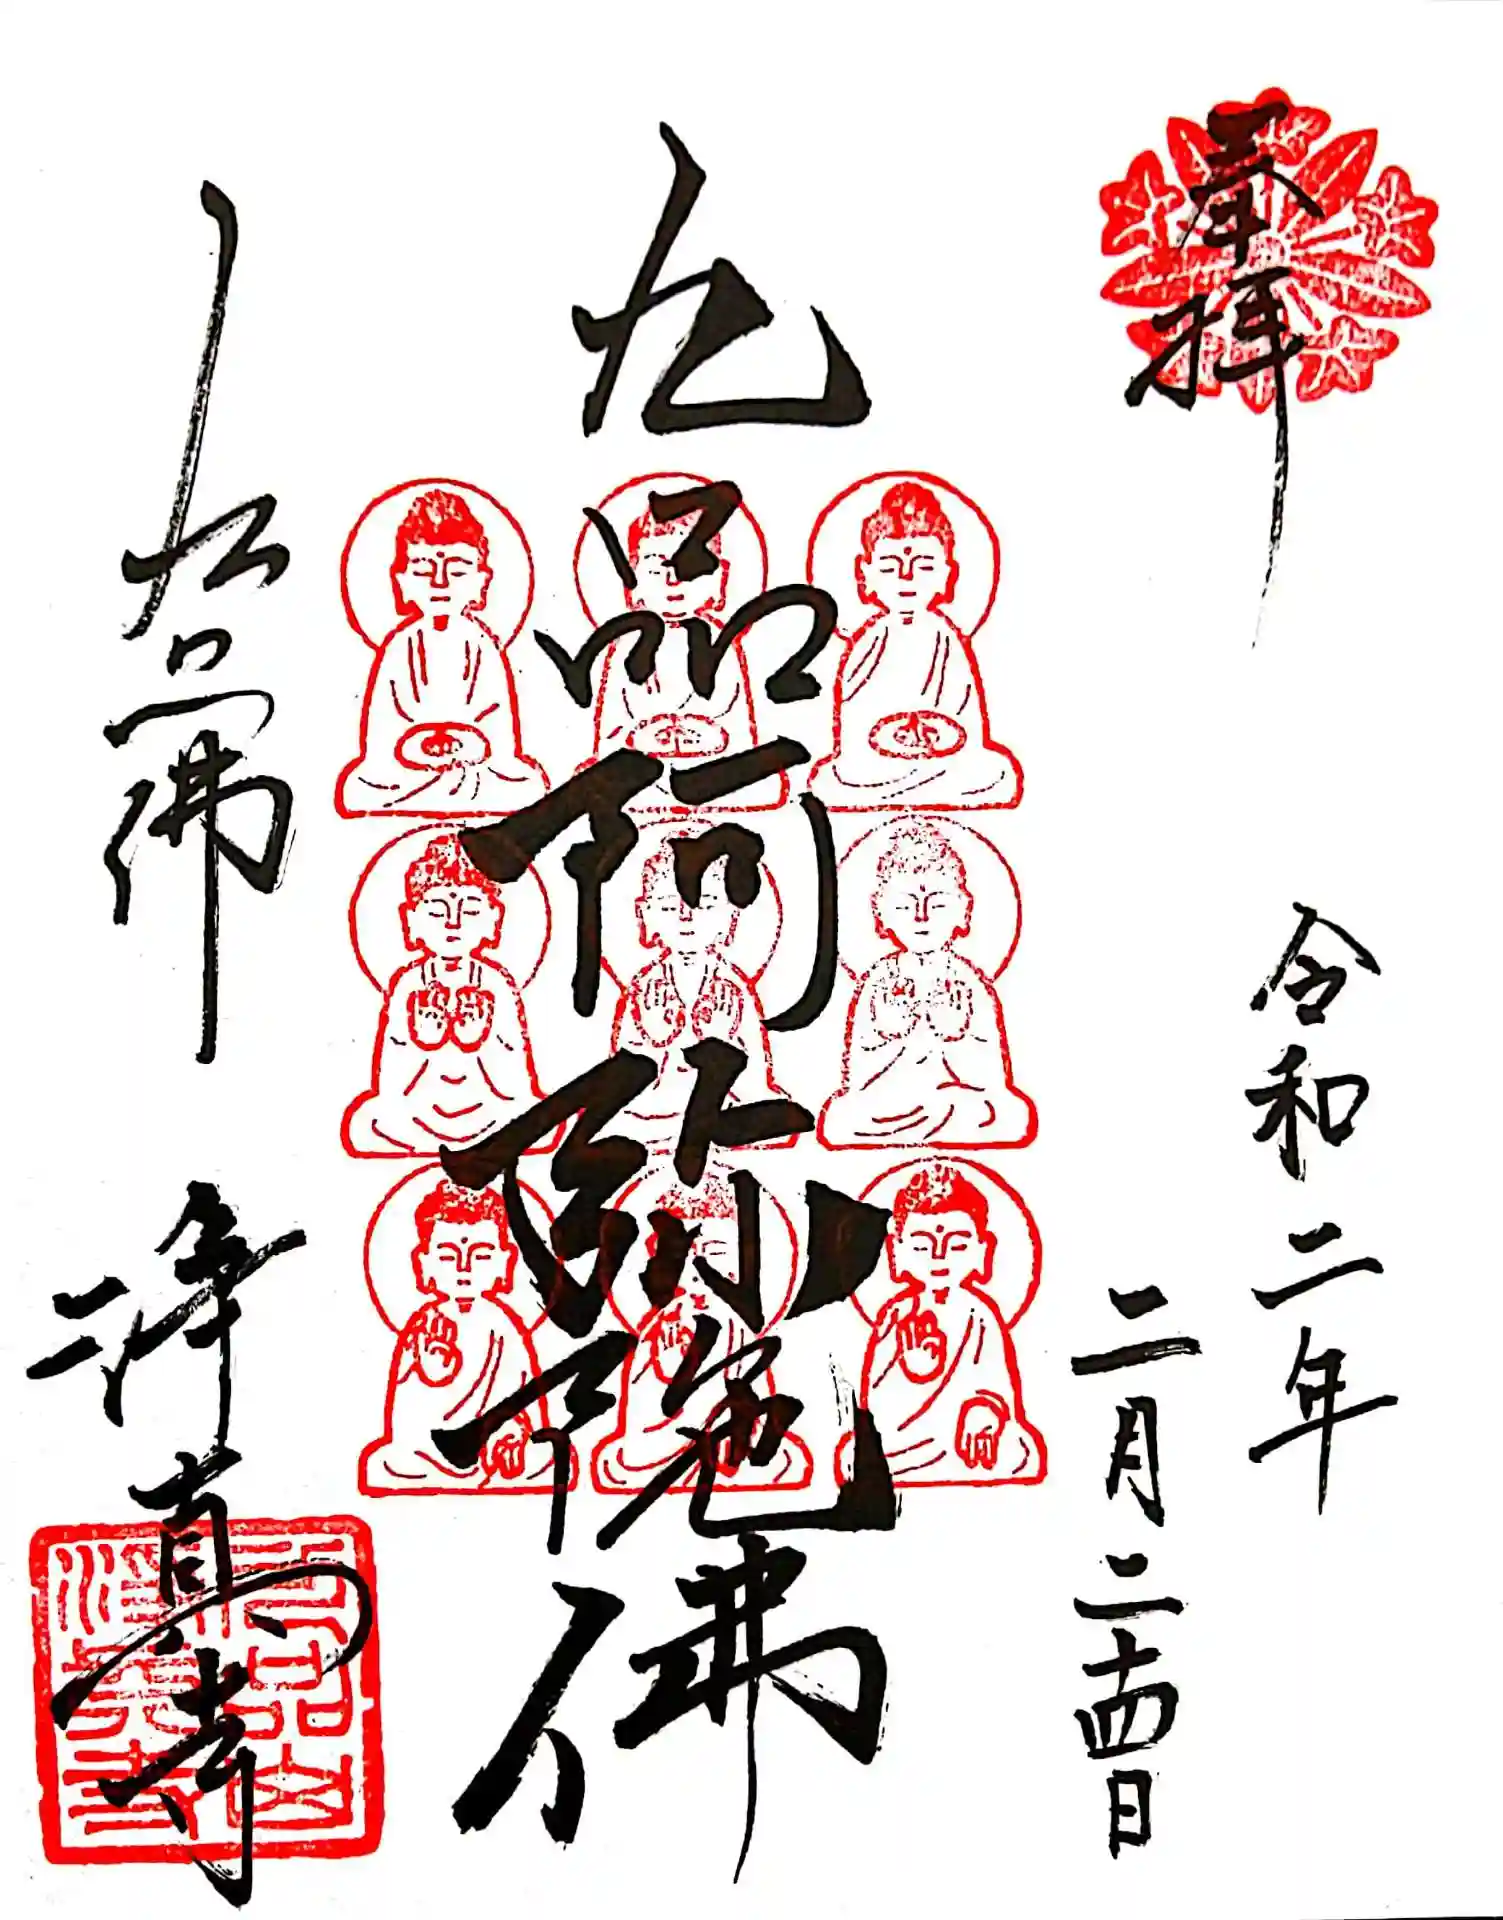 奉拝
令和二年
二月二十四日
九品阿弥陀佛
九品佛
浄真寺
九品山
浄真寺